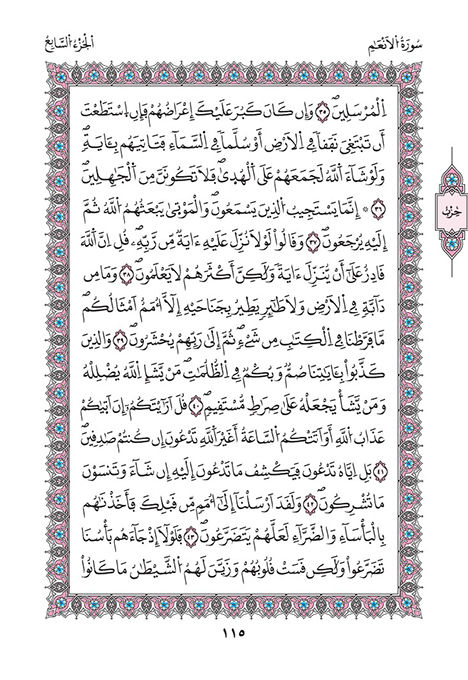 سُورَةُ الْأَنْعَامِ
الْجُزْءُ السَّابِعُ
اَ۬لْمُرْسَلِينَۖ ٣٥ وَإِن كَانَ كَبُرَ عَلَيْكَ إِعْرَاضُهُمْ فَإِنِ اِ۪سْتَطَعْتَ
أَن تَبْتَغِيَ نَفَقاٗ فِے اِ۬لَارْضِ أَوْ سُلَّماٗ فِے اِ۬لسَّمَآءِ فَتَاتِيَهُم بِـَٔايَةٖۖ
وَلَوْ شَآءَ اَ۬للَّهُ لَجَمَعَهُمْ عَلَي اَ۬لْهُد۪يٰۖ فَلَا تَكُونَنَّ مِنَ اَ۬لْجَٰهِلِينَۖ
٣٦ ۞ إِنَّمَا يَسْتَجِيبُ اُ۬لذِينَ يَسْمَعُونَۖ وَالْمَوْت۪يٰ يَبْعَثُهُمُ اُ۬للَّهُ ثُمَّ
إِلَيْهِ يُرْجَعُونَۖ ٣٧ وَقَالُواْ لَوْلَا نُزِّلَ عَلَيْهِ ءَايَةٞ مِّن رَّبِّهِۦۖ قُلِ اِنَّ اَ۬للَّهَ
قَادِرٌ عَلَيٰٓ أَنْ يُّنَزِّلَ ءَايَةٗ وَلَٰكِنَّ أَكْثَرَهُمْ لَا يَعْلَمُونَۖ ٣٨ وَمَا مِن
دَآبَّةٖ فِے اِ۬لَارْضِ وَلَا طَٰٓئِرٖ يَطِيرُ بِجَنَاحَيْهِ إِلَّآ أُمَمٌ اَمْثَالُكُمۖ
مَّا فَرَّطْنَا فِے اِ۬لْكِتَٰبِ مِن شَےْءٖۖ ثُمَّ إِلَيٰ رَبِّهِمْ يُحْشَرُونَۖ ٣٩ وَالذِينَ
كَذَّبُواْ بِـَٔايَٰتِنَا صُمّٞ وَبُكْمٞ فِے اِ۬لظُّلُمَٰتِۖ مَنْ يَّشَإِ اِ۬للَّهُ يُضْلِلْهُ
وَمَنْ يَّشَأْ يَجْعَلْهُ عَلَيٰ صِرَٰطٖ مُّسْتَقِيمٖۖ ٤٠ قُلَ اَرَٰٓيْتَكُمُۥٓ إِنَ اَت۪يٰكُمْ
عَذَابُ اُ۬للَّهِ أَوَ اَتَتْكُمُ اُ۬لسَّاعَةُ أَغَيْرَ اَ۬للَّهِ تَدْعُونَ إِن كُنتُمْ صَٰدِقِينَۖ
٤١ بَلِ اِيَّاهُ تَدْعُونَ فَيَكْشِفُ مَا تَدْعُونَ إِلَيْهِ إِن شَآءَ وَتَنسَوْنَ
مَا تُشْرِكُونَۖ ٤٢ وَلَقَدَ اَرْسَلْنَآ إِلَيٰٓ أُمَمٖ مِّن قَبْلِكَ فَأَخَذْنَٰهُم
بِالْبَأْسَآءِ وَالضَّرَّآءِ لَعَلَّهُمْ يَتَضَرَّعُونَۖ ٤٣ فَلَوْلَآ إِذْ جَآءَهُم بَأْسُنَا
تَضَرَّعُواْۖ وَلَٰكِن قَسَتْ قُلُوبُهُمْ وَزَيَّنَ لَهُمُ اُ۬لشَّيْطَٰنُ مَا كَانُواْ
حِزْبٌ
١١٥